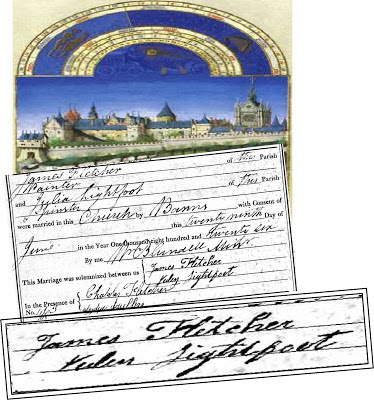 James Fletcher of this Parish
Painter
and Lightfoot of this Parish
Spinster
were married in this Church by Banns with Consent of
this twenty ninth Day of
June in the Year One thousand eight hundred and twenty six
By me
This Marriage was solemnized between us { James Fletcher
Lightfoot
In the Presence of { Charles Fletcher
No.
James Fletcher
Lightfoot